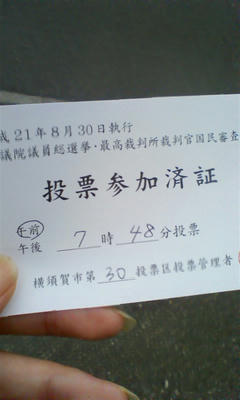 成21年8月30日執行
議院議員総選挙・最高裁判所裁判官国民審査
投票参加済証
午前
午後 7時48分投票
横須賀市第30投票区投票管理者